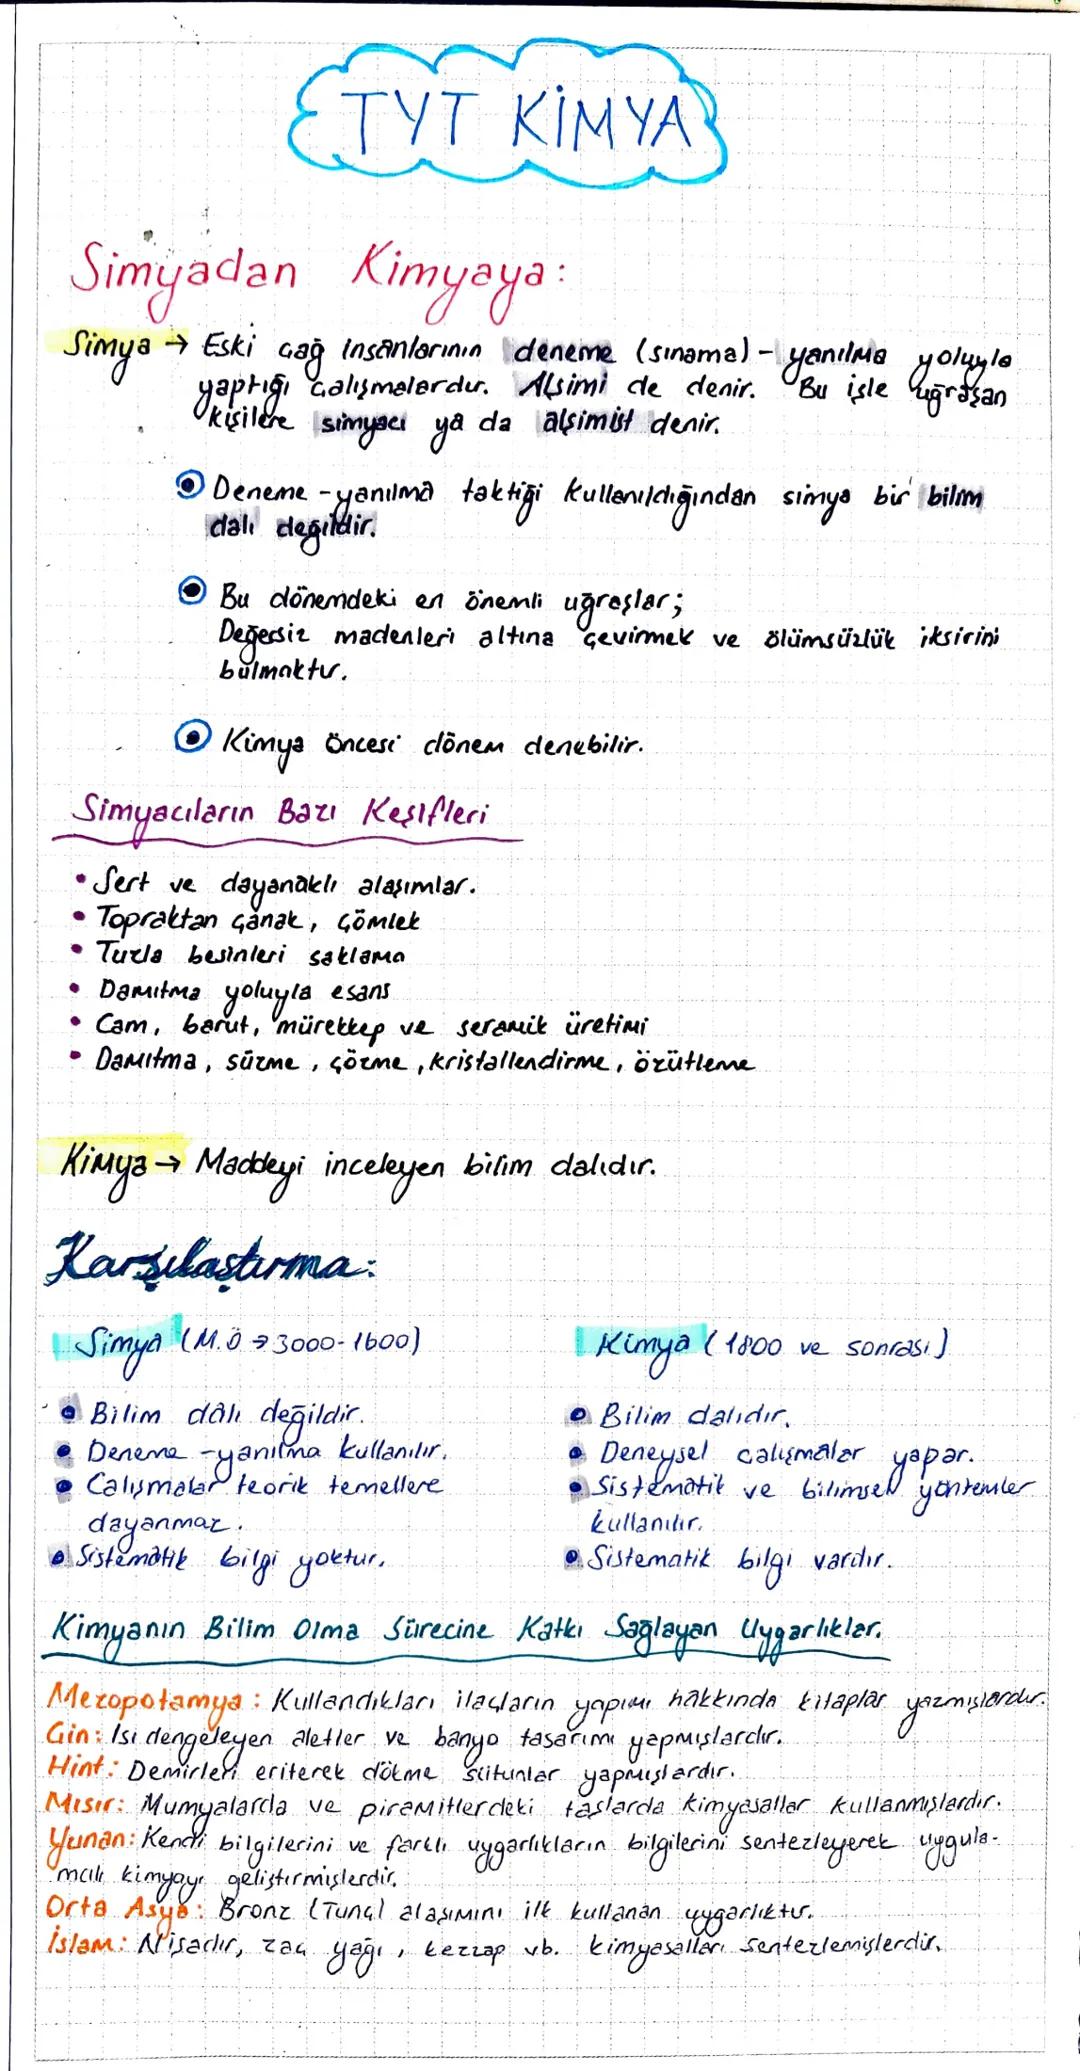 TYT KİMYA
Simyadan Kimyaya:
Simya → Eski çağ insanlarının deneme (sınama) - yanılma yoluyla
yaptığı çalışmalardır. Alşimi de denir. Bu işle uğraşan
kişilere simyacı ya da alşimist denir.
Deneme - yanılma taktiği kullanıldığından simya bir bilim
dalı değildir.
Bu dönemdeki en önemli uğraşlar;
Değersiz madenleri altına çevirmek ve ölümsüzlük iksirini
bulmaktır.
Kimya öncesi dönem denebilir.
Simyacıların Bazı Keşifleri
• Sert ve dayanaklı alaşımlar.
• Topraktan çanak, çömlek
• Tuzla besinleri saklama
• Damıtma yoluyla esans
• Cam, barut, mürekkep ve seramik üretimi
• Damıtma, süzme, çözme, kristallendirme, özütleme
Kimya → Maddeyi inceleyen bilim dalıdır.
Karşılaştırma:
Simya (M.Ö → 3000-1600)
Kimya (1800 ve sonrası)
• Bilim dalı değildir.
• Bilim dalıdır.
• Deneme - yanılma kullanılır.
• Deneysel çalışmalar yapar.
• Çalışmalar teorik temellere
• Sistematik ve bilimsel yöntemler
dayanmaz.
kullanılır.
• Sistematik bilgi yoktur.
• Sistematik bilgi vardır.
Kimyanın Bilim Olma Sürecine Katkı Sağlayan Uygarlıklar.
Mezopotamya: Kullandıkları ilaçların yapımı hakkında kitaplar yazmışlardır.
Çin: Isı dengeleyen aletler ve banyo tasarımı yapmışlardır.
Hint: Demirleri eriterek dökme sütunlar yapmışlardır.
Mısır: Mumyalarda ve piramitlerdeki taşlarda kimyasallar kullanmışlardır.
Yunan: Kendi bilgilerini ve farklı uygarlıkların bilgilerini sentezleyerek uygula-
malı kimyayı geliştirmişlerdir.
Orta Asya: Bronz (Tunç) alaşımını ilk kullanan uygarlıktır.
İslam: Nişadır, zaç yağı, kezzap vb. kimyasalları sentezlemişlerdir.